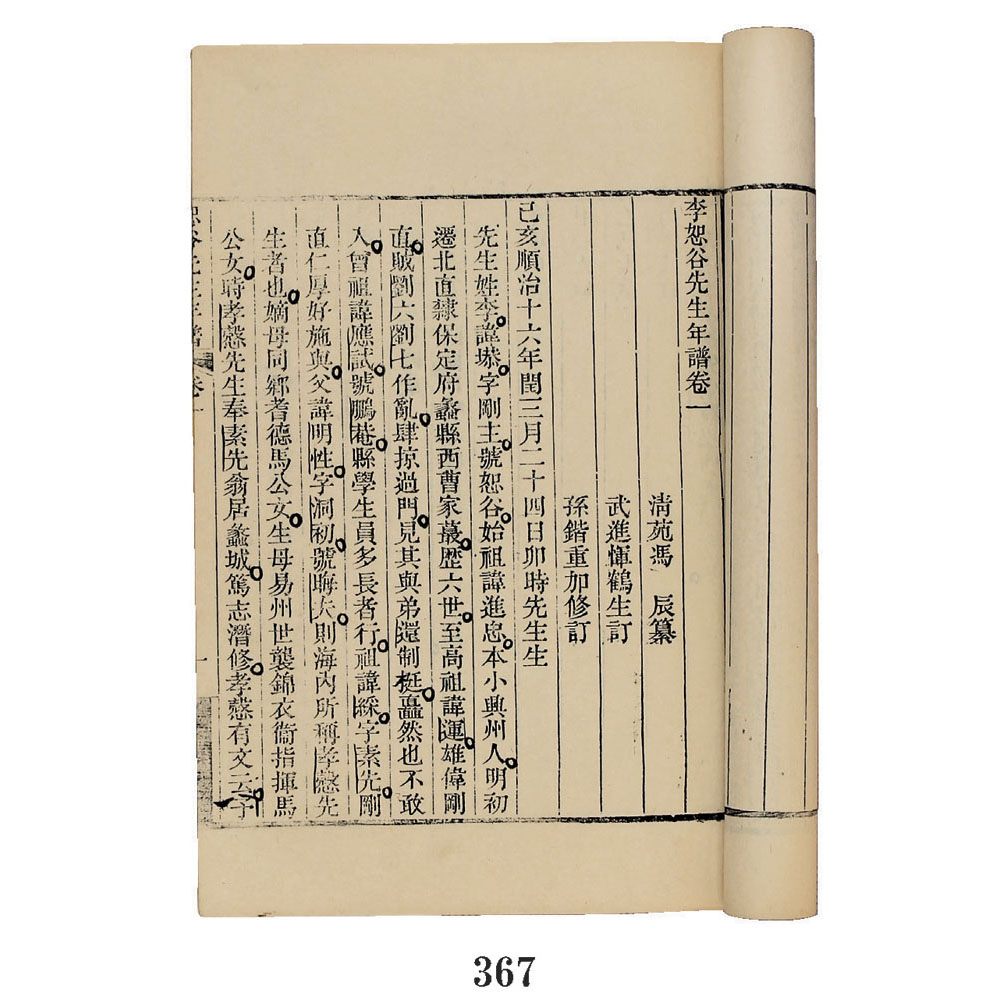 李恕谷先生年譜卷一
清苑馮　辰纂
武進惲鶴生訂
孫鍇重加修訂
己亥順治十六年閏三月二十四日卯時先生生
先生姓李諱塨字剛主號恕谷始祖諱進忠本小興州人明初
遷北直隸保定府蠡縣西曹家蕞歷六世至高祖諱運雄偉剛
直賊劉六劉七作亂肆掠過門見其與弟還制梃矗然也不敢
入曾祖諱應試號鵬菴縣學生員多長者行祖諱綵字素先剛
直仁厚好施與父諱明性字洞初號晦夫則海內所稱孝慤先
生者也嫡母同鄉耆德馬公女生母易州世襲錦衣衛指揮馬
公女時孝慤先生奉素先翁居蠡城篤志潛修孝慤有文云子
367